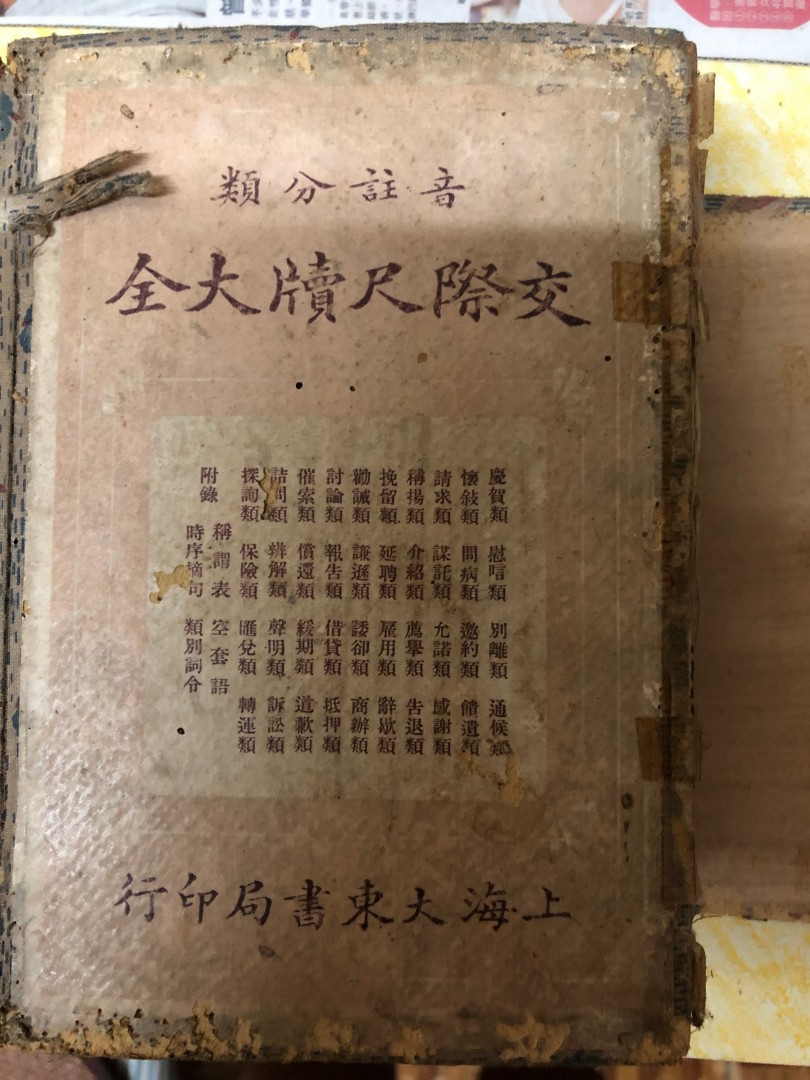 音註分類
交際尺牘大全
慶賀類 慰唁類 別離類 通候類
懷敍類 問病類 邀約類 餽遺類
請求類 謀託類 允諾類 感謝類
稱揚類 介紹類 薦舉類 告退類
挽留類 延聘類 雇用類 辭歇類
勸誡類 謙遜類 諉卻類 商辦類
討論類 報告類 借貸類 抵押類
催索類 償還類 緩期類 道歉類
詰問類 辨解類 聲明類 訴訟類
探詢類 保險類 匯兌類 轉運類
附錄 稱謂表 空套語
時序摘句 類別詞令
上海大東書局印行